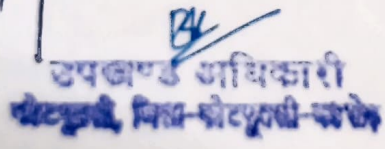 उपखण्ड अधिकारी
कोटपूतली, जिला-कोटपूतली-बहरोड़